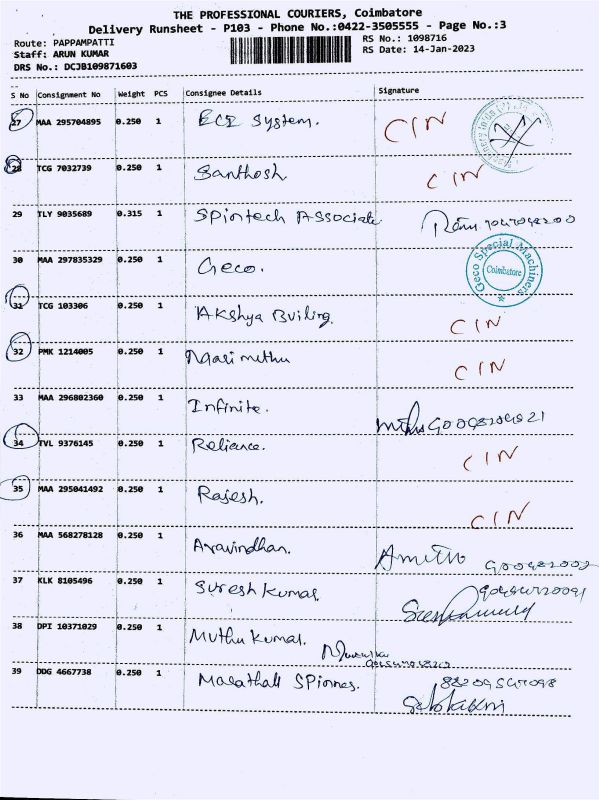 THE PROFESSIONAL COURIERS, Coimbatore
Delivery Runsheet - P103 - Phone No.:0422-3505555 - Page No.:3
Route: PAPPAMPATTI RS No.: 1098716
Staff: ARUN KUMAR RS Date: 14-Jan-2023
DRS No.: DCJB109871603
S No Consignment No Weight PCS Consignee Details Signature
27 MAA 295704895 0.250 1 ECI System. CIN
28 TCG 7032739 0.250 1 Santhosh CIN
29 TLY 9035689 0.315 1 Spintech Associate
30 MAA 297835329 0.250 1 Geco. Geco Special Machiners Coimbatore
31 TCG 103306 0.250 1 Akshya Builing. CIN
32 PMK 1214005 0.250 1 CIN
33 MAA 296802360 0.250 1 Infinite.
34 TVL 9376145 0.250 1 Reliance. CIN
35 MAA 295041492 0.250 1 Rajesh. CIN
36 MAA 568278128 0.250 1 Aravindhan.
37 KLK 8105496 0.250 1 Suresh Kumar
38 DPI 10371029 0.250 1 Muthu Kumar.
39 DDG 4667738 0.250 1